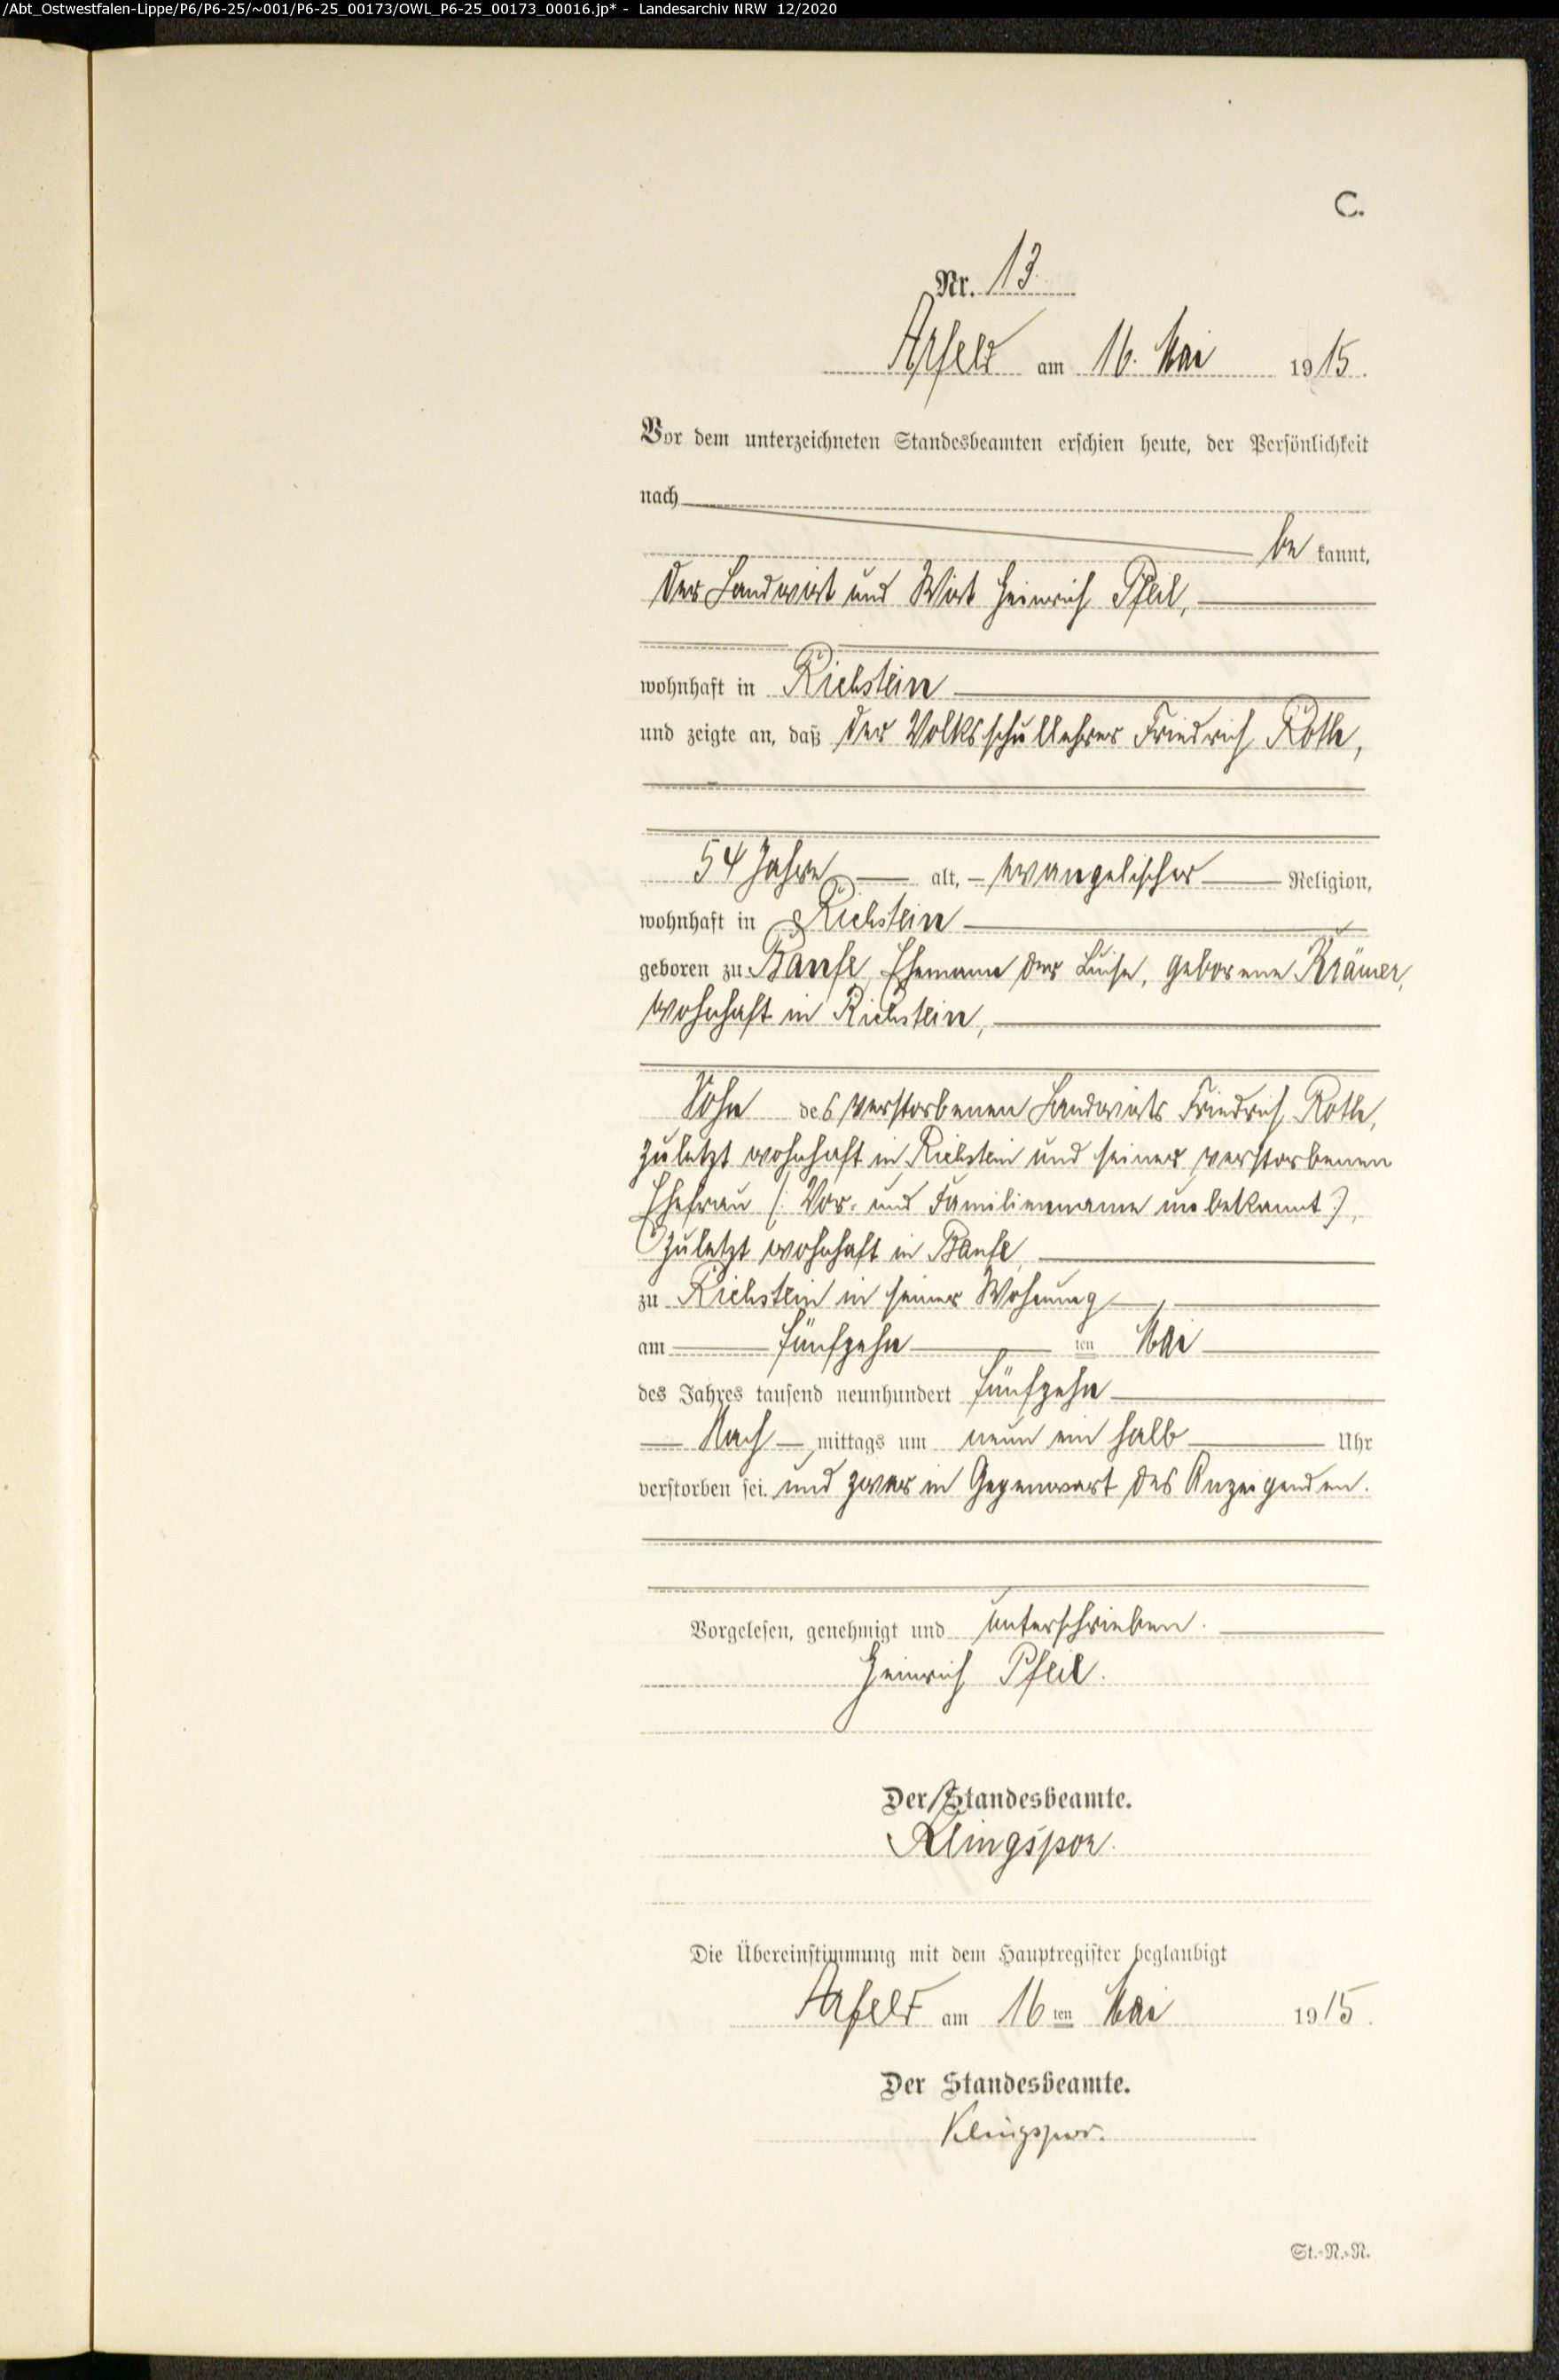 /Abt_Ostwestfalen-Lippe/P6/P6-25/~001/P6-25_00173/OWL_P6-25_00173_00016.jp* - Landesarchiv NRW 12/2020
C.
Nr. 13
Arfeld am 16. Mai 1915.
Vor dem unterzeichneten Standesbeamten erschien heute, der Persönlichkeit
nach
bekannt,
der Landwirt und Wirt Heinrich Pfeil,
wohnhaft in Richstein
und zeigte an, daß der Volksschullehrer Friedrich Roth,
54 Jahre alt, evangelischer Religion,
wohnhaft in Richstein
geboren zu Banfe, Ehemann der Luise, geborene Krämer,
wohnhaft in Richstein,
Sohn des verstorbenen Landwirts Friedrich Roth,
zuletzt wohnhaft in Richstein und seiner verstorbenen
Ehefrau (: Vor- und Familienname unbekannt :),
zuletzt wohnhaft in Banfe,
zu Richstein in seiner Wohnung,
am fünfzehn ten Mai
des Jahres tausend neunhundert fünfzehn
Nachmittags um neun ein halb Uhr
verstorben sei. und zwar in Gegenwart des Anzeigenden.
Vorgelesen, genehmigt und unterschrieben.
Heinrich Pfeil.
Der Standesbeamte.
Klingspor.
Die Übereinstimmung mit dem Hauptregister beglaubigt
Arfeld am 16ten Mai 1915.
Der Standesbeamte.
Klingspor.
St.-N.-N.